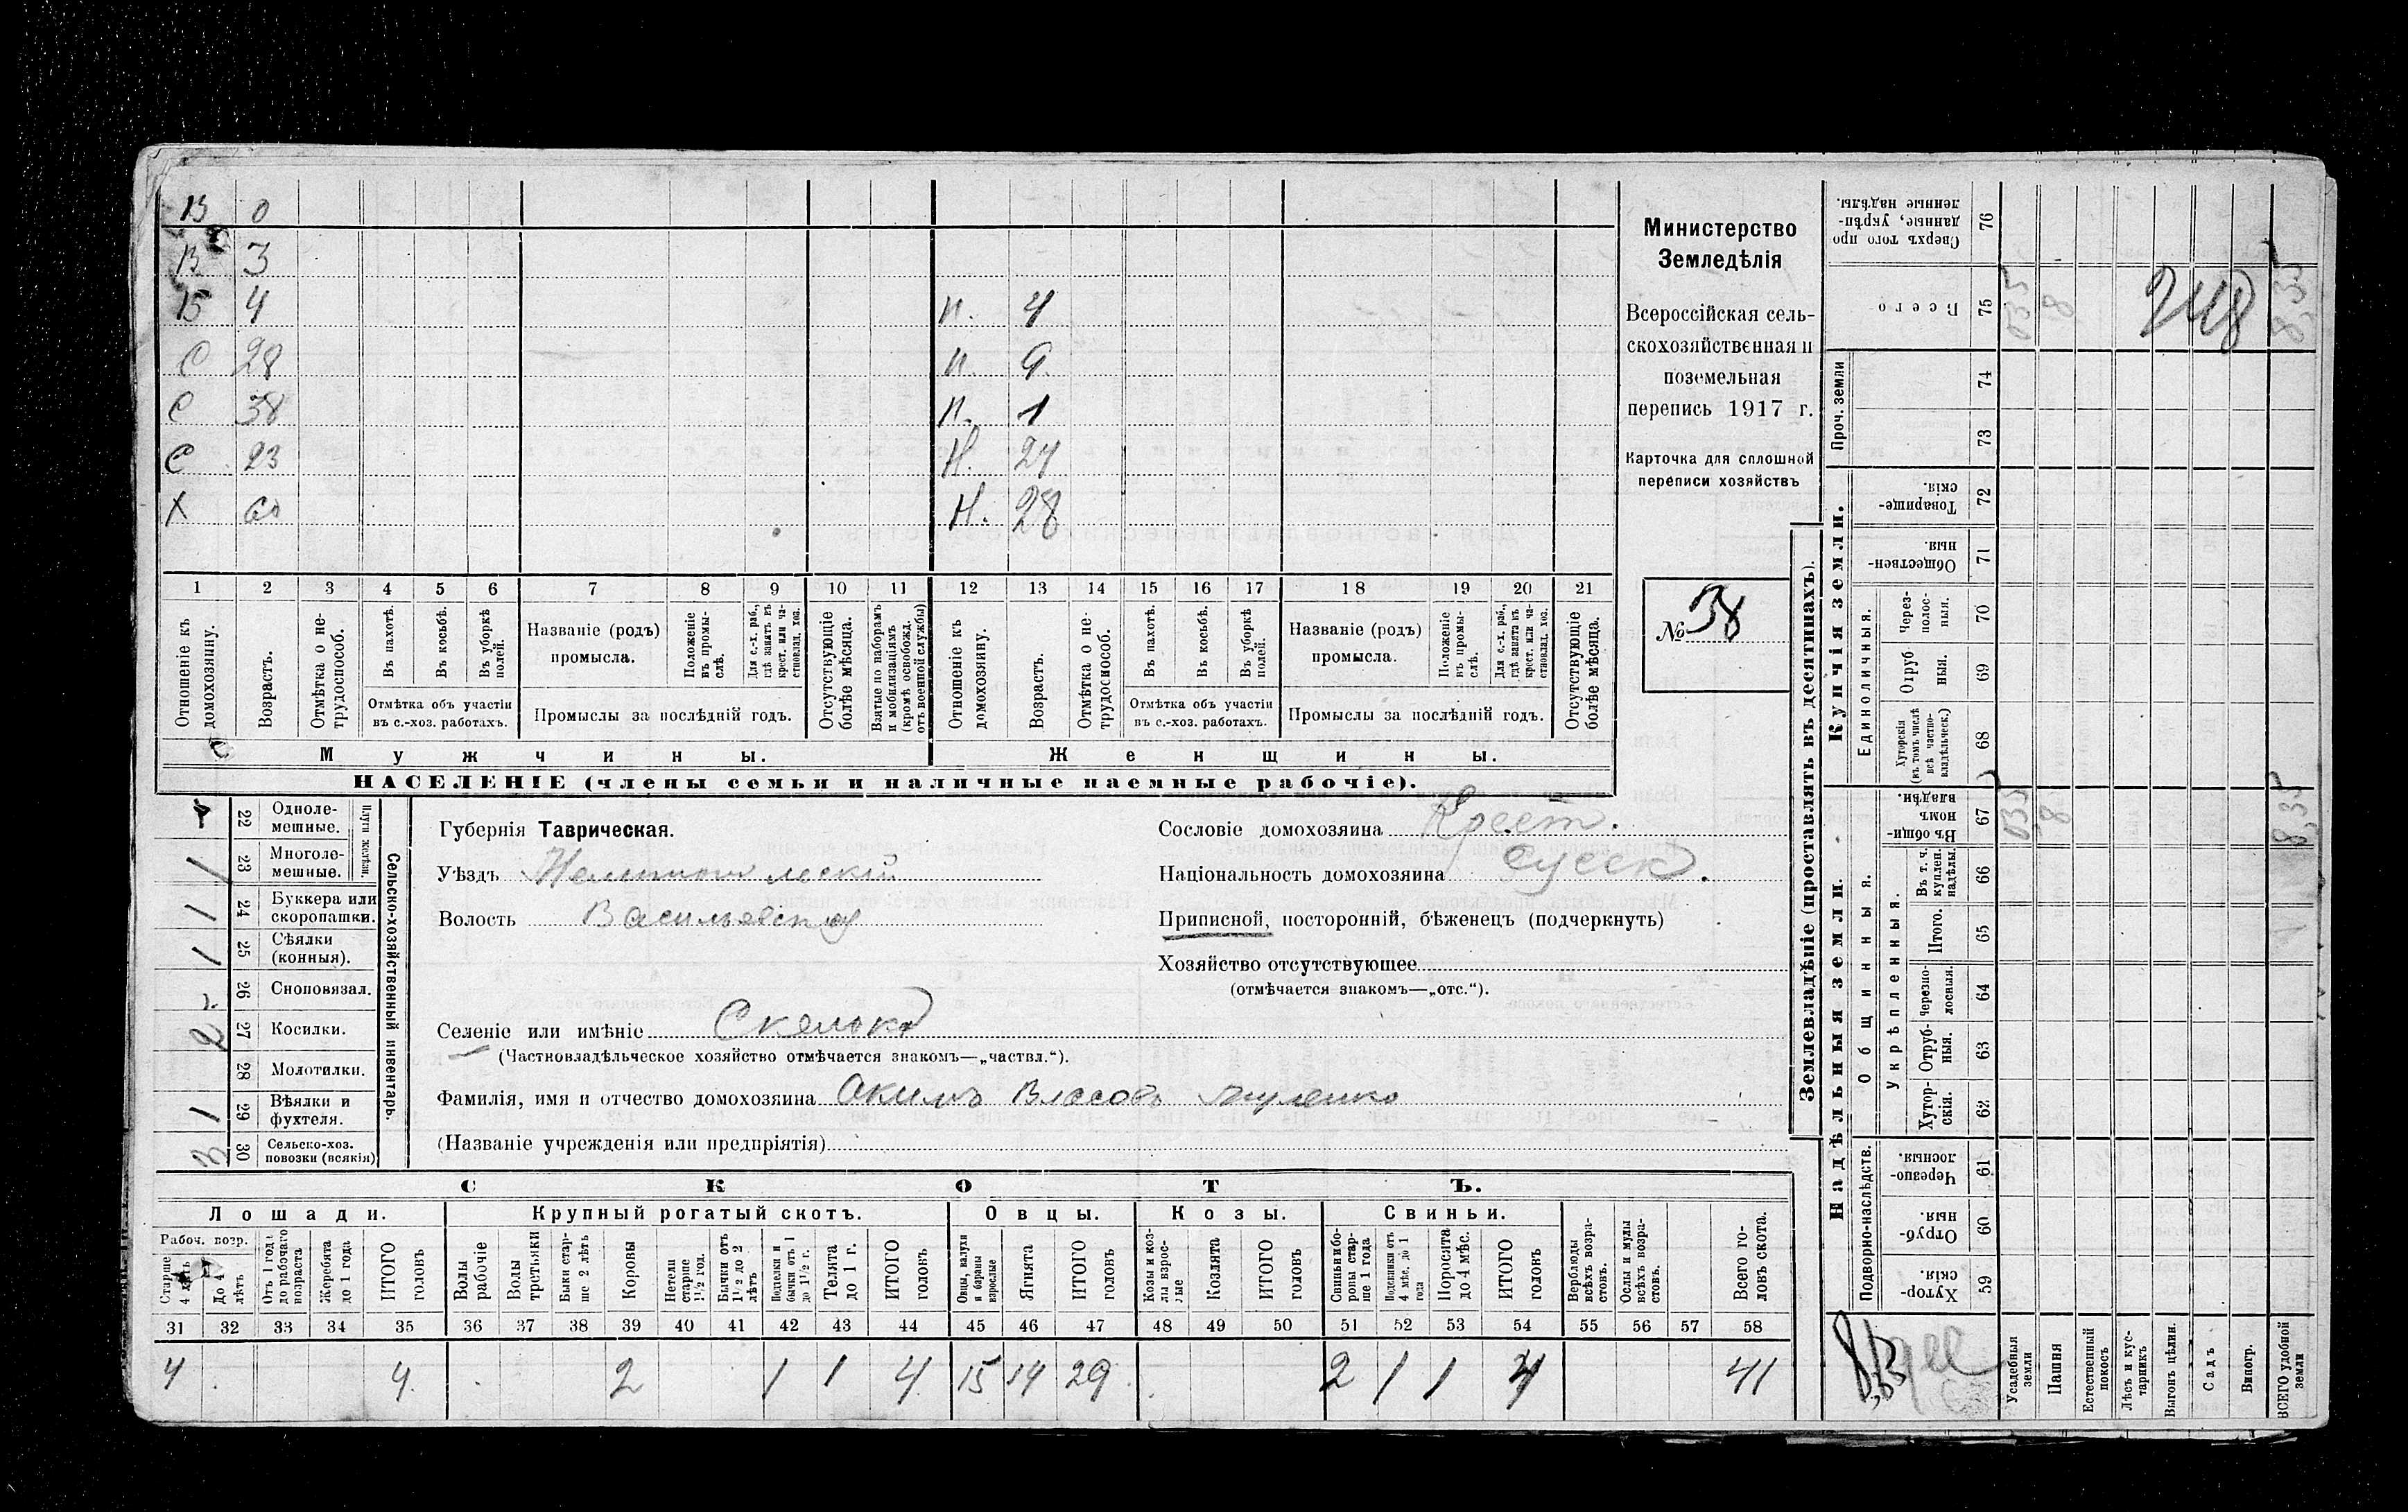 В 0
В 3
В 4 н. 4
С 28 н. 9
С 38 н. 1
С 23 Н. 24
Х 60 Н. 28
1 2 3 4 5 6 7 8 9 10 11 12 13 14 15 16 17 18 19 20 21
Отношеніе къ домохозяину.
Возрастъ.
Отмѣтка о не-трудоспособ.
Въ пахотѣ.
Въ косьбѣ.
Въ уборкѣ полей.
Отмѣтка объ участіи въ с.-хоз. работахъ.
Названіе (родъ) промысла.
Положеніе въ промы-слѣ.
Для с.-х. раб., гдѣ занятъ въ крест. или ча-стновлад. хоз.
Промыслы за послѣдній годъ.
Отсутствующіе болѣе мѣсяца.
Взятые по наборамъ и мобилизаціямъ (кромѣ освобожд. отъ военной службы)
Отношеніе къ домохозяину.
Возрастъ.
Отмѣтка о не-трудоспособ.
Въ пахотѣ.
Въ косьбѣ.
Въ уборкѣ полей.
Отмѣтка объ участіи въ с.-хоз. работахъ.
Названіе (родъ) промысла.
Положеніе въ промы-слѣ.
Для с.-х. раб., гдѣ занята въ крест. или ча-стновлад. хоз.
Промыслы за послѣдній годъ.
Отсутствующіе болѣе мѣсяца.
Мужчины. Женщины.
НАСЕЛЕНІЕ (члены семьи и наличные наемные рабочіе).
Министерство
Земледѣлія
Всероссійская сель-
скохозяйственная и
поземельная
перепись 1917 г.
Карточка для сплошной
переписи хозяйствъ
№ 38
22 Одноле-мешные.
1 23 Многоле-мешные.
Плуги желѣзн.
1 24 Буккера или скоропашки.
1 25 Сѣялки (конныя).
26 Сноповязал.
2 27 Косилки.
28 Молотилки.
1 29 Вѣялки и фухтеля.
3 30 Сельско-хоз. повозки (всякія)
Сельско-хозяйственный инвентарь.
Губернія Таврическая.
Уѣздъ Мелитопольскій
Волость Васильевская
Сословіе домохозяина Крест.
Національность домохозяина русск.
Приписной, посторонній, бѣженецъ (подчеркнуть)
Хозяйство отсутствующее
(отмѣчается знакомъ—„отс.“).
Селеніе или имѣніе Скелька
(Частновладѣльческое хозяйство отмѣчается знакомъ—„частвл.“).
Фамилія, имя и отчество домохозяина Акимъ Власовъ
(Названіе учрежденія или предпріятія)
СКОТЪ.
Лошади. Крупный рогатый скотъ. Овцы. Козы. Свиньи.
Рабоч. возр.
Старше 4 лѣтъ
До 4 лѣтъ
Отъ 1 года до рабочаго возраста
Жеребята до 1 года
ИТОГО головъ
Волы рабочіе
Волы третьяки
Быки стар-ше 2 лѣтъ
Коровы
Нетели старше 1½ год.
Бычки отъ 1½ до 2 лѣтъ
Подтелки и бычки отъ 1 до 1½ г.
Телята до 1 г.
ИТОГО головъ
Овцы, валухи и бараны взрослые
Ягнята
ИТОГО головъ
Козы и коз-лы взрос-лые
Козлята
ИТОГО головъ
Свиньи и бо-ровы стар-ше 1 года
Подсвинки отъ 4 мѣс. до 1 года
Поросята до 4 мѣс.
ИТОГО головъ
Верблюды всѣхъ возра-стовъ.
Ослы и мулы всѣхъ возра-стовъ.
Всего го-ловъ скота.
31 32 33 34 35 36 37 38 39 40 41 42 43 44 45 46 47 48 49 50 51 52 53 54 55 56 57 58
4 4 2 1 1 4 15 14 29 2 1 1 4 41
Землевладѣніе (проставлять въ десятинахъ).
Сверхъ того про-данные, укрѣп-ленные надѣлы. 76
Всего 75 0,35 8 8,35
248
Проч. земли 74
73
Купчія земли.
Товарище-скія. 72
Обществен-ныя. 71
Единоличныя.
Через-полос-ныя. 70
Отруб-ныя. 69
Хуторскія (въ томъ числѣ всѣ частно-владѣльческ.) 68
Надѣльныя земли.
Общинныя.
Въ общи-номъ владѣн. 67 0,35 8 8,35
Укрѣпленныя.
Въ т. ч. куплен. надѣлы. 66
Итого. 65
Черезпо-лосныя. 64
Отруб-ныя. 63
Хутор-скія. 62
Подворно-наслѣдств.
Черезпо-лосныя. 61
Отруб-ныя. 60
Хутор-скія. 59
Усадебныя земли
Пашня
Естественный покосъ
Лѣсъ и кус-тарникъ
Выгонъ цѣлин.
Садъ
Виногр.
ВСЕГО удобной земли